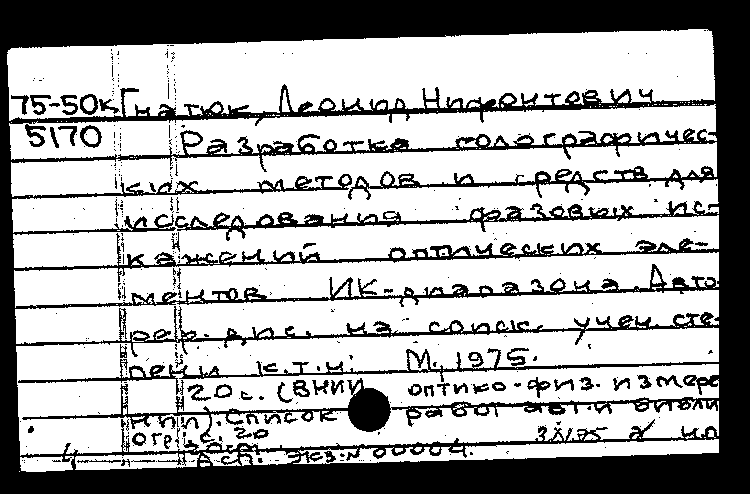 75-50к Гнатюк, Леонид Нифонтович
5170 Разработка голографичес-
ких методов и средств для
исследования фазовых ис-
кажений оптических эле-
ментов ИК-диапазона. Авто-
реф. дис. на соиск. учен. сте-
пени к.т.н. М., 1975.
20 с. (ВНИИ оптико-физ. измере
ний). Список работ авт. и библи
огр.: с. 20
Экз. N 00004.
3XI75 и.п
4